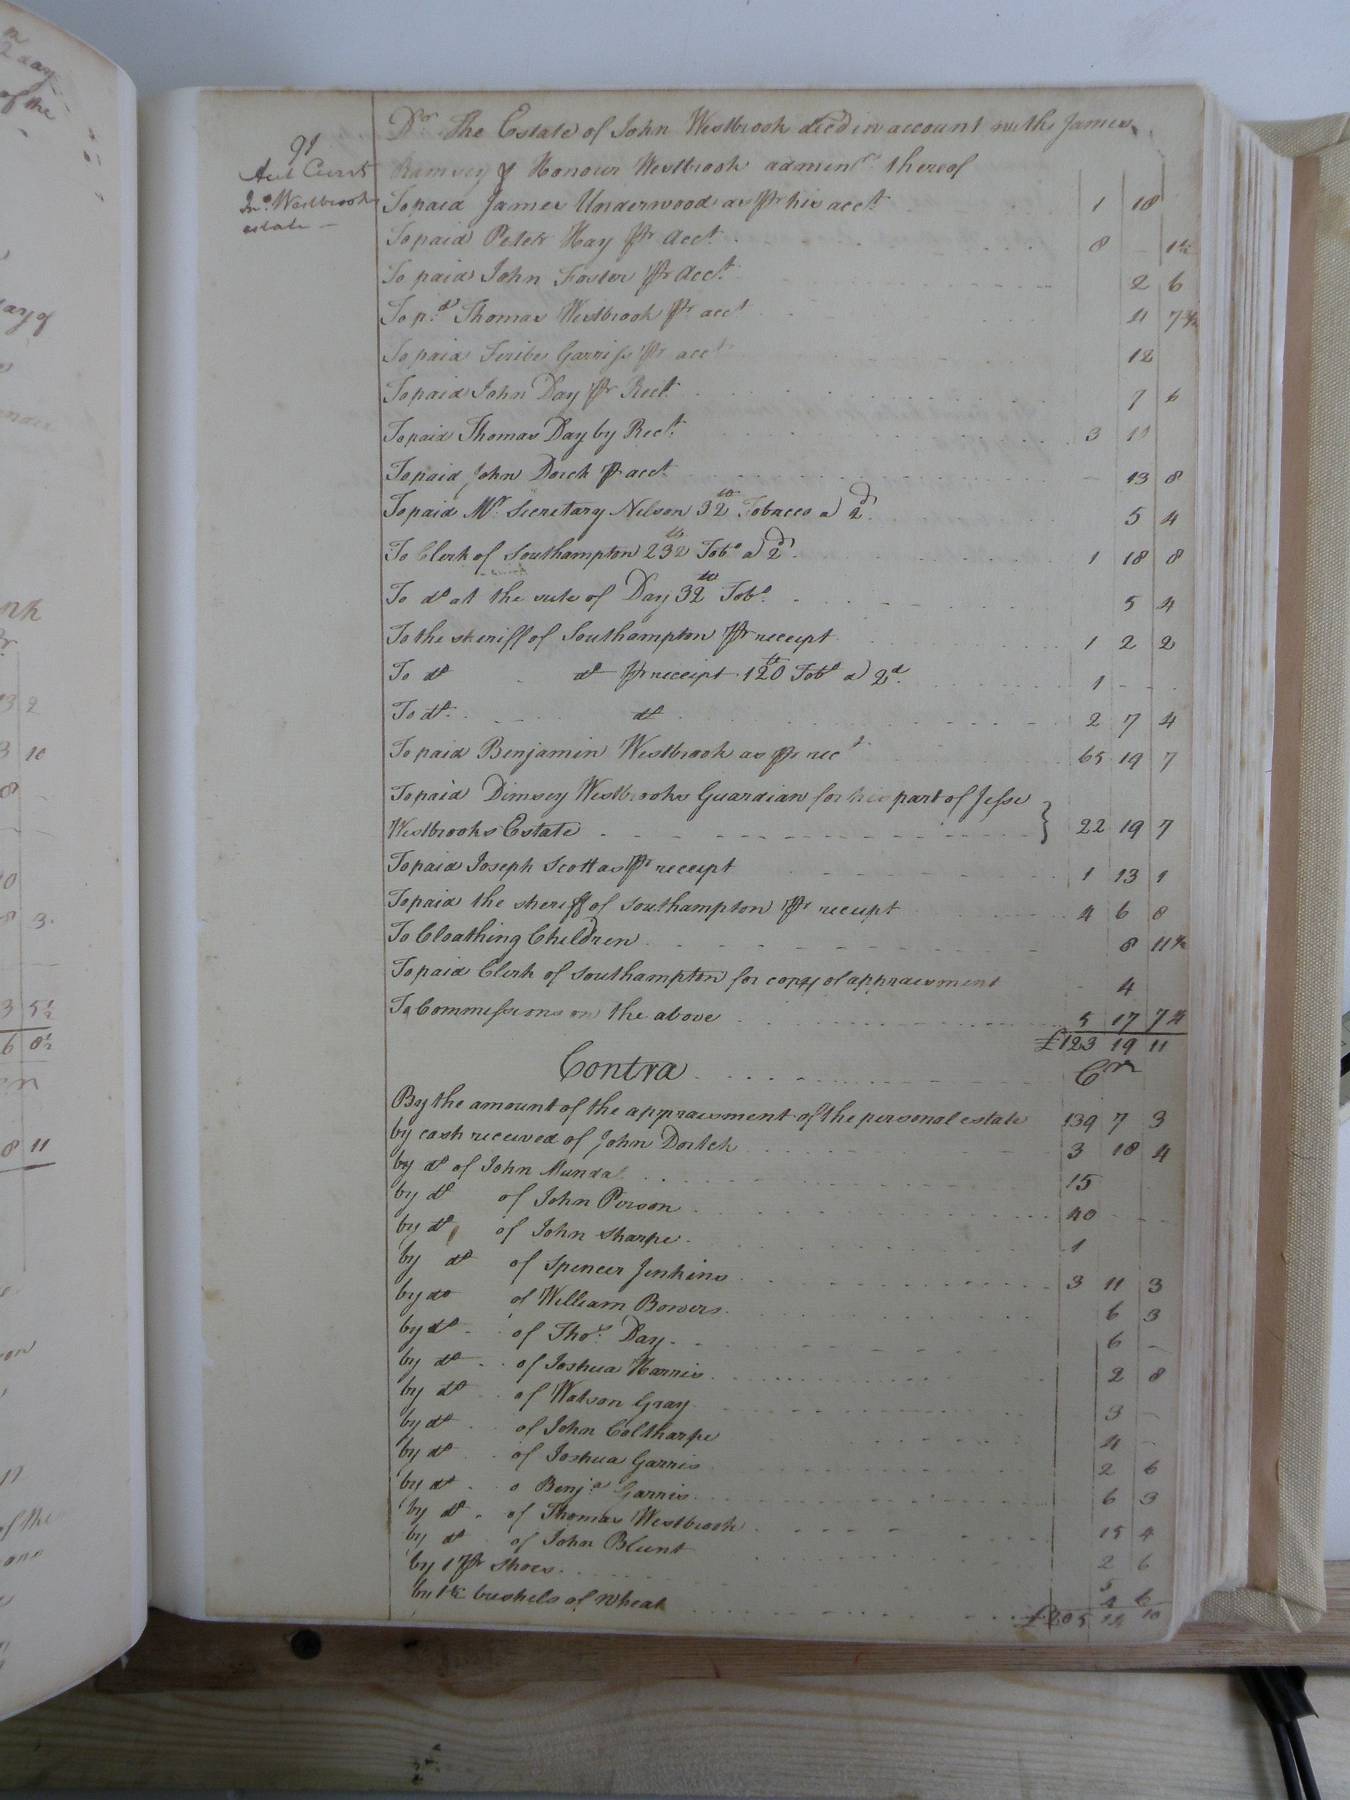 91
Acct Curt
Jno. Westbrooks
estate —
Dr. The Estate of John Westbrook decd in account with James
Ramsey & Honour Westbrook admenrs. thereof
To paid James Underwood as pr his acct. 1 18
To paid Peter Hay pr Acct. 8 - 1½
To paid John Foster pr Acct. 2 6
To pd. Thomas Westbrook pr acct 4 7¾
To paid Garriss pr acct 12
To paid John Day pr Rect. 7 6
To paid Thomas Day by Rect. 3 11
To paid John Dorch pr acct. - 13 8
To paid Mr. Secretary Nelson 32 lb Tobacco a 2d. 5 4
To Clerk of Southampton 232 lb Tobo. a 2d. 1 18 8
To do at the sute of Day 32 lb Tobo. 5 4
To the sheriff of Southampton pr receipt 1 2 2
To do do pr receipt 120 lb Tobo a 2d. 1 - -
To do. do 2 7 4
To paid Benjamin Westbrook as pr rect. 65 19 7
To paid Dimsey Westbrooks Guardian for his part of Jesse
Westbrooks Estate } 22 19 7
To paid Joseph Scott as pr receipt 1 13 1
To paid the sheriff of Southampton pr receipt 4 6 8
To Cloathing Children 8 11½
To paid Clerk of Southampton for copy of appraisment - 4
To Commissions on the above 5 17 7¼
£123 19 11
Contra Cr
By the amount of the appraisment of the personal estate 139 7 3
by cash received of John Dortch 3 18 4
by do of John Mundal 15
by do of John Person 40 - -
by do of John Sharpe. 1
by do of Spencer Jenkins 3 11 3
by do of William Bowers. 6 3
by do. of Thos. Day. 6 -
by do. of Joshua Harris. 2 8
by do of Watson Gray 3 -
by do of John Coltharpe 4 -
by do of Joshua Garris 2 6
by do. o Benja Garris 6 3
by do. of Thomas Westbrook 15 4
by do of John Blunt 2 6
by 1 pr shoes. 5
by 1½ bushels of Wheat 4 6
£205 14 10